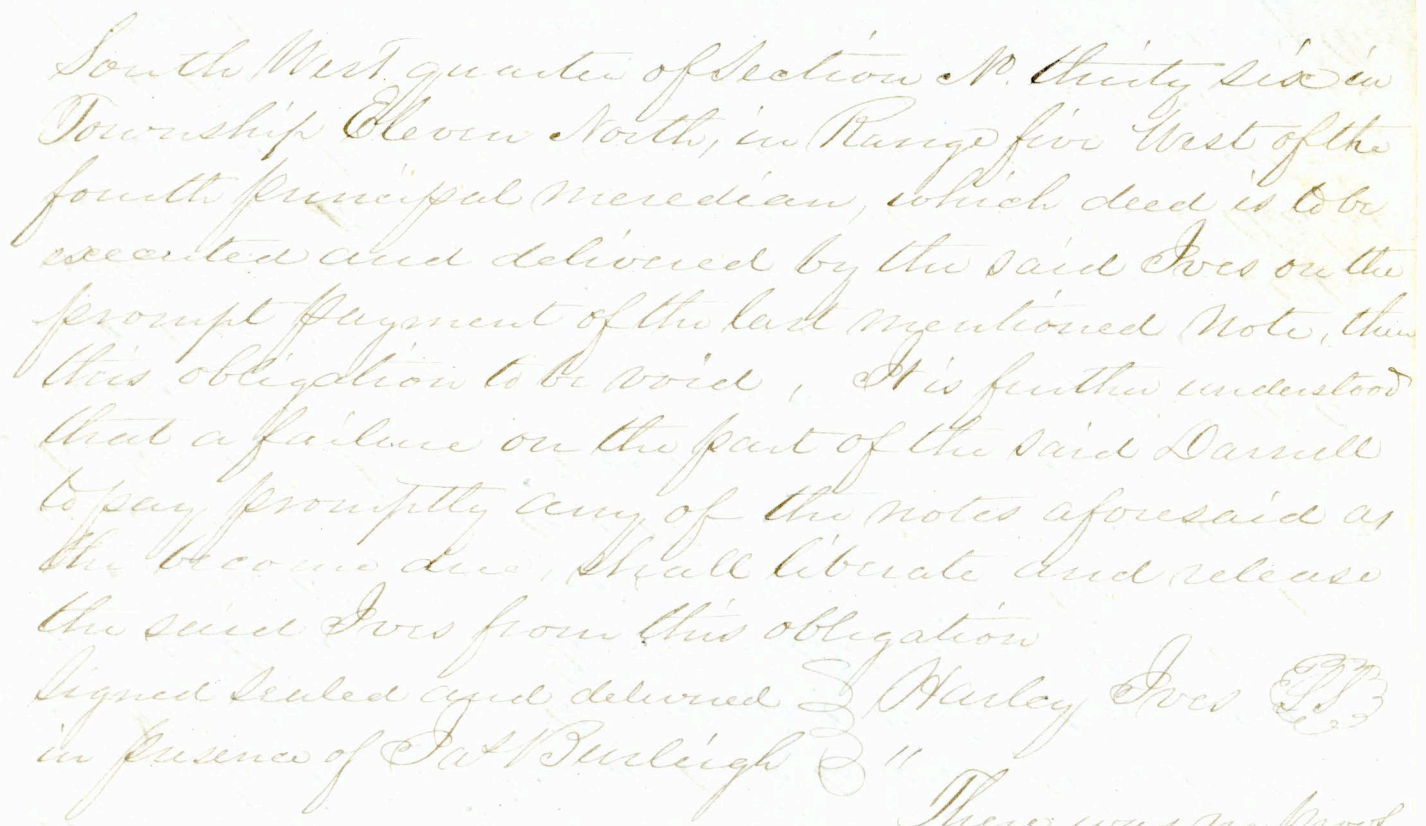 South West quarter of Section No. thirty six in
Township Eleven North, in Range five West of the
fourth principal meredian, which deed is to be
executed and delivered by the said Ives on the
prompt payment of the last mentioned note, then
this obligation to be void, It is further understood
that a failure on the part of the said Darnell
to pay promptly any of the notes aforesaid as
the become due, shall liberate and release
the said Ives from this obligation
Signed sealed and delivered Harley Ives
in presence of Jas Burleigh "
There was no proof